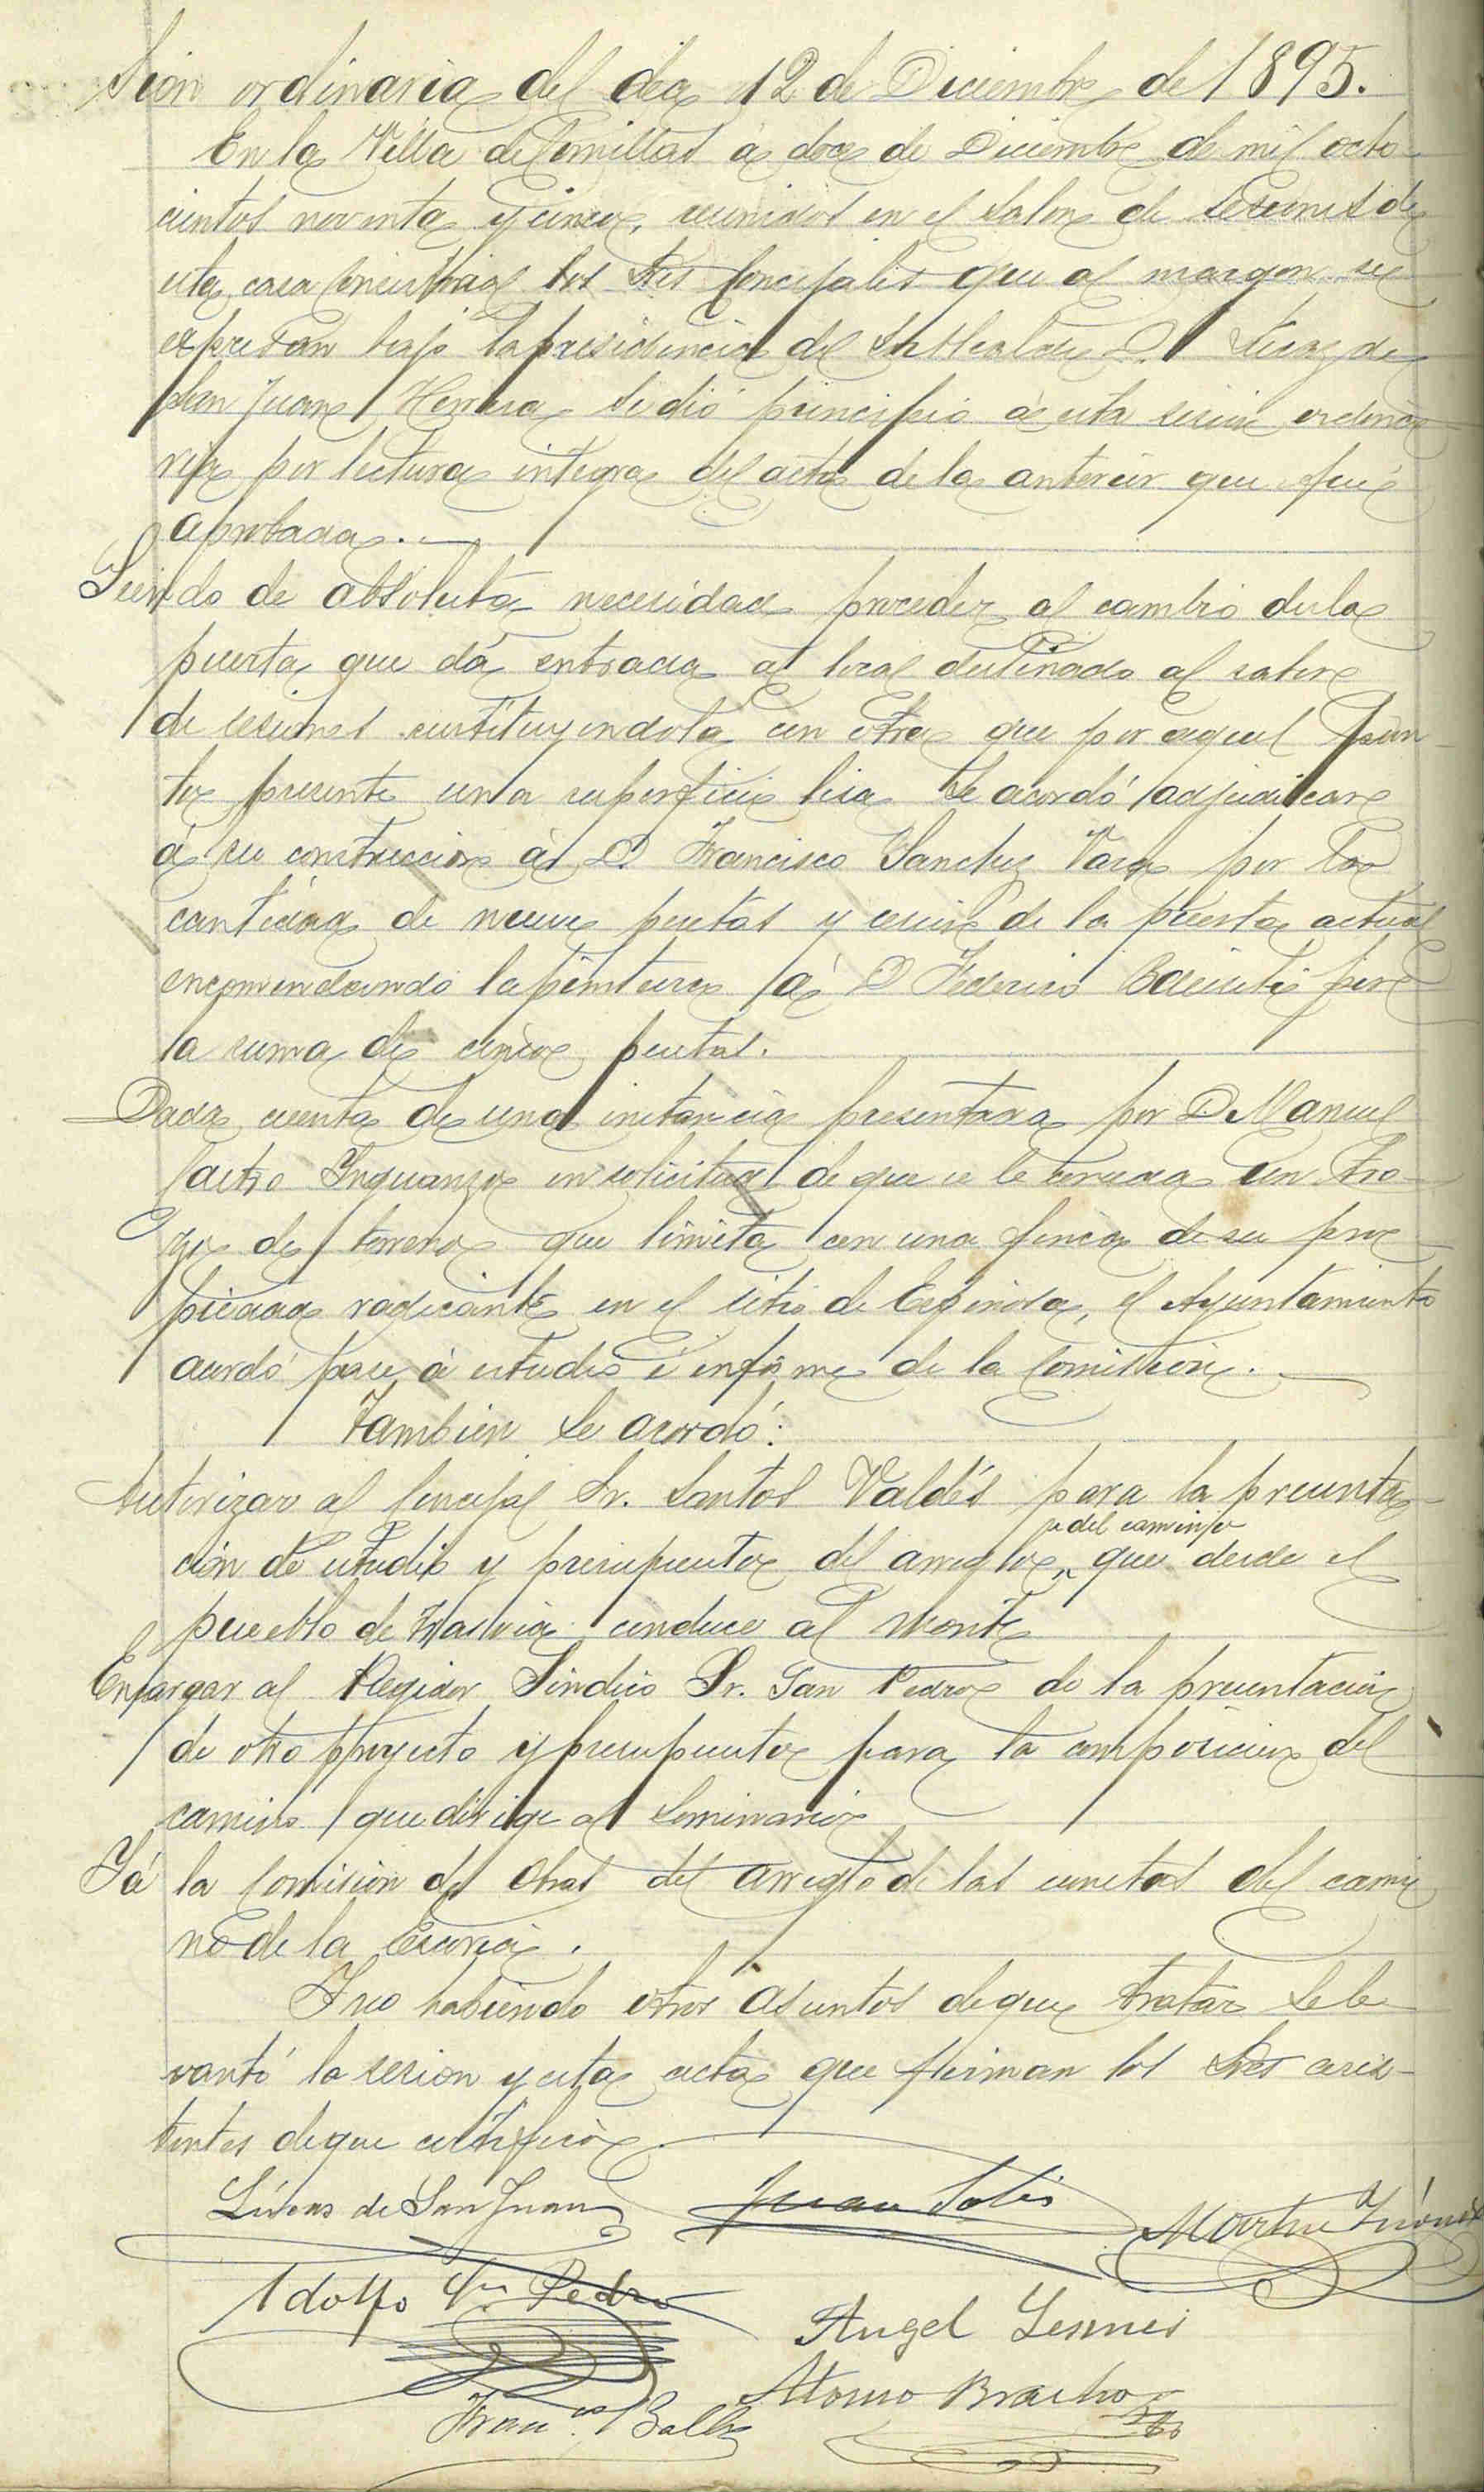 Sesion ordinaria del dia 12 de Diciembre de 1895.
En la Villa de Comillas á doce de Diciembre de mil ocho-
cientos noventa y cinco, reunidos en el salon de sesiones de
esta casa Consistorial los Sres Concejales que al margen se
espresan bajo la presidencia del Sr Alcalde D. Lucas de
San Juan Herrera se dió principio á esta sesion ordina
ria por lectura integra del acta de la anterior que fué
aprobada.
Siendo de absoluta necesidad proceder al cambio de la
puerta que dá entrada al local destinado al salon
de sesiones sustituyendola con otra que por aquel pun-
to presente una superficie lisa se acordó adjudicar
á su construccion á D Francisco Sanchez Vara por la
cantidad de nueve pesetas y de la puerta actual
encomendando la pintura á D Federico por
la suma de cinco pesetas.
Dada cuenta de una instancia presentada por D Manuel
Castro Inguanzo en solicitud de que se le conceda un tro-
zo de terreno que limita con una finca de su pro
piedad radicante en el sitio de Espinosa, el Ayuntamiento
acordó pase á estudio é informe de la Comision.
Tambien se acordó:
Autorizar al Concejal Sr. Santos Valdés para la presenta-
cion de estudio y presupuesto del arreglo del camino que desde el
pueblo de Trasvia conduce al Monte
Encargar al Regidor Sindico Sr. San Pedro de la presentacion
de otro proyecto y presupuesto para la composicion del
camino que dirige al Seminario
Y á la Comision de Obras del arreglo de las cunetas del cami
no de la
Y no habiendo otros asuntos de que tratar se le
vantó la sesion y esta acta que firman los Sres asis-
tentes de que certifico
Lúcas de San Juan Juan Solis Martin
Adolfo Sn Pedro
Angel Lesmes
Franco.